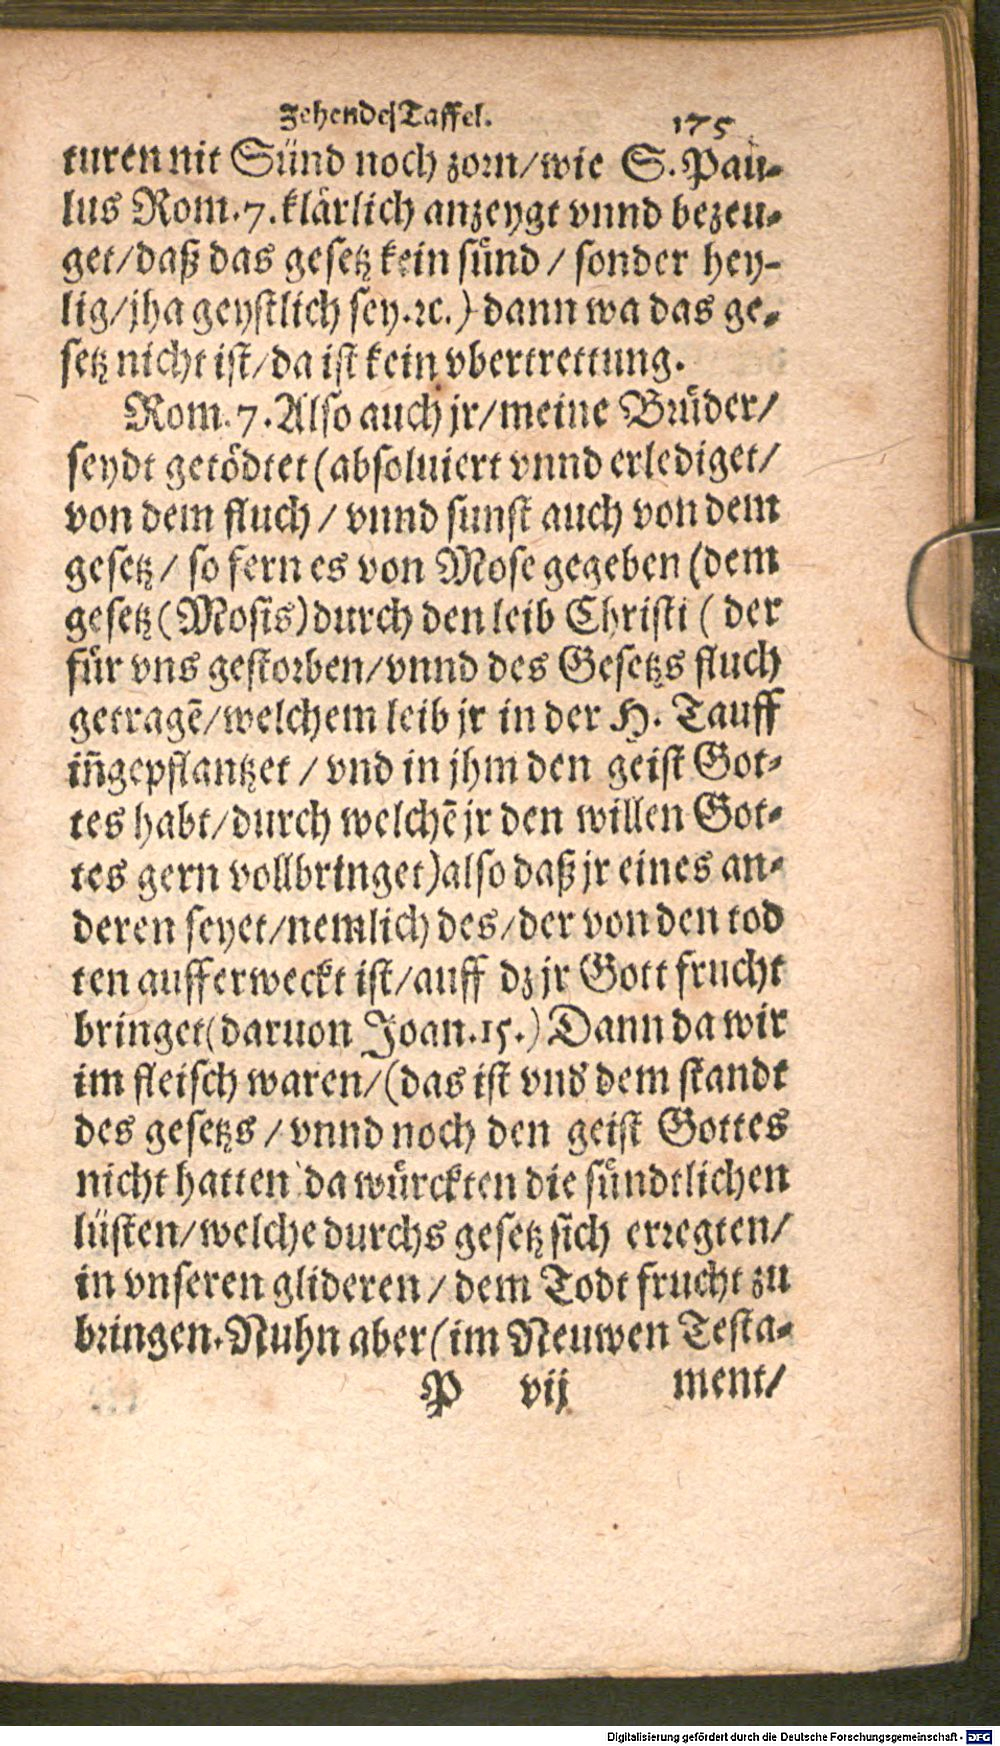 Zehende Taffel. 175
turen nit Sünd noch zorn/wie S. Pau-
lus Rom. 7. klärlich anzeygt vnnd bezeu-
get/daß das gesetz kein sünd / sonder hey-
lig/jha geystlich sey. ꝛc.) dann wa das ge-
setz nicht ist/da ist kein vbertrettung.
Rom. 7. Also auch jr/meine Brüder/
seydt getödtet (absoluiert vnnd erlediget/
von dem fluch / vnnd sunst auch von dem
gesetz / so fern es von Mose gegeben (dem
gesetz (Mosis) durch den leib Christi ( der
für vns gestorben/vnnd des Gesetzs fluch
getragẽ/welchem leib jr in der H. Tauff
iñgepflantzet / vnd in jhm den geist Got-
tes habt/durch welchẽ jr den willen Got-
tes gern vollbringet) also daß jr eines an-
deren seyet/nemlich des/der von den tod
ten aufferweckt ist/auff dz jr Gott frucht
bringet (daruon Joan. 15.) Dann da wir
im fleisch waren/(das ist vnd dem standt
des gesetzs / vnnd noch den geist Gottes
nicht hatten da würckten die sündtlichen
lüsten/welche durchs gesetz sich erregten/
in vnseren glideren / dem Todt frucht zu
bringen. Nuhn aber (im Neuwen Testa-
P vij ment/
Digitalisierung gefördert durch die Deutsche Forschungsgemeinschaft - DFG